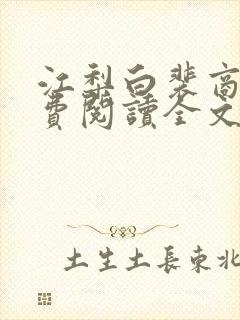 江梨白裴商
費閱讀全文
土生土長東北